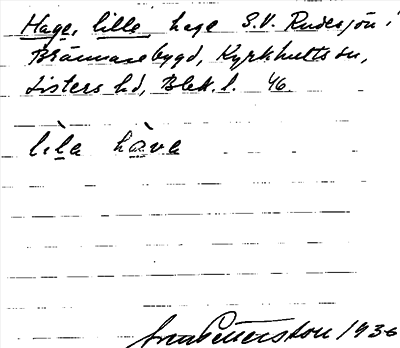 Hage, lille hage S.V. Rudesjön i
Brännarebygd, Kyrkhults sn,
Listers hd, Blek. l. 46
lila hava
Pettersson 1936